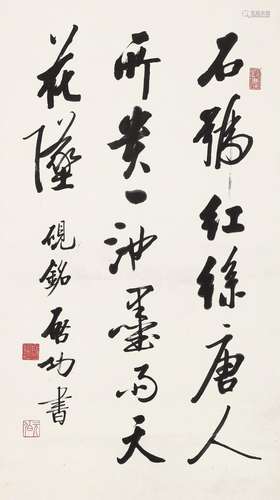 石號紅絲唐人
所貴一池墨雨天
花墜 硯銘 啓功書